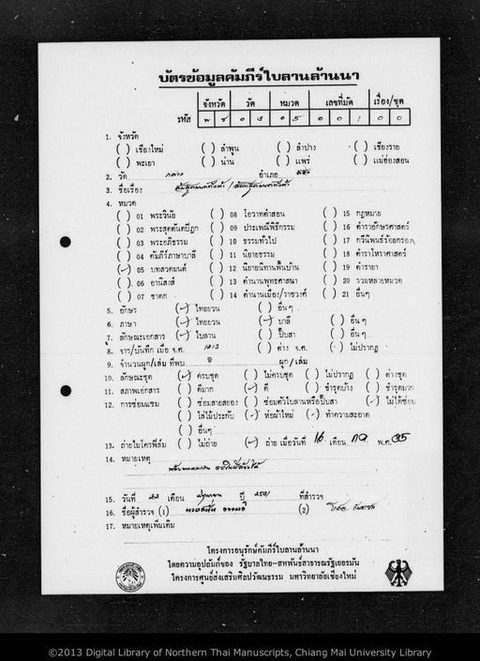 บัตรข้อมูลคัมภีร์ใบลานล้านนา
จังหวัด วัด หมวด เลขที่มัด เรื่อง/ชุด
รหัส พ ย 0 3 0 5 0 0 1 0 0
1. จังหวัด
( ) เชียงใหม่ ( ) ลำพูน ( ) ลำปาง ( ) เชียงราย
( ) พะเยา ( ) น่าน ( ) แพร่ ( ) แม่ฮ่องสอน
2. วัด อำเภอ
3. ชื่อเรื่อง
4. หมวด
( ) 01 พระวินัย ( ) 08 โอวาทคำสอน ( ) 15 กฎหมาย
( ) 02 พระสุตตันตปิฎก ( ) 09 ประเพณีพิธีกรรม ( ) 16 ตำราอักษรศาสตร์
( ) 03 พระอภิธรรม ( ) 10 ธรรมทั่วไป ( ) 17 กวีนิพนธ์ร้อยกรอง
( ) 04 คัมภีร์ภาษาบาลี ( ) 11 นิยายธรรม ( ) 18 ตำราโหราศาสตร์
(✓) 05 บทสวดมนต์ ( ) 12 นิยายนิทานพื้นบ้าน ( ) 19 ตำรายา
( ) 06 อานิสงส์ ( ) 13 ตำนานพุทธศาสนา ( ) 20 รวมหลายหมวด
( ) 07 ชาดก ( ) 14 ตำนานเมือง/ราชวงศ์ ( ) 21 อื่นๆ
5. อักษร (✓) ไทยยวน ( ) อื่น ๆ
6. ภาษา (✓) ไทยยวน (✓) บาลี ( ) อื่น ๆ
7. ลักษณะเอกสาร (✓) ใบลาน ( ) ปั๊บสา ( ) อื่น ๆ
8. จาร/บันทึก เมื่อ จ.ศ. ( ) ค่าง จ.ศ. ( ) ไม่ปรากฏ
9. จำนวนผูก/เล่ม ที่พบ ผูก/เล่ม
10. ลักษณะชุด (✓) ครบชุด ( ) ไม่ครบชุด ( ) ไม่ปรากฏ ( ) ค่างชุด
11. สภาพเอกสาร ( ) ดีมาก (✓) ดี ( ) ชำรุดบ้าง ( ) ชำรุดมาก
12. การซ่อมแซม ( ) ซ่อมสายสยอง ( ) ซ่อมตัวใบลานหรือปั๊บสา (✓) ไม่ได้ซ่อม
( ) ใส่ไม้ประกับ (✓) ห่อผ้าใหม่ (✓) ทำความสะอาด
( ) อื่นๆ
13. ถ่ายไมโครฟิล์ม ( ) ไม่ถ่าย (✓) ถ่าย เมื่อวันที่ 16 เดือน กค พ.ศ. 35
14. หมายเหตุ
15. วันที่ 22 เดือน ปี ที่สำรวจ
16. ชื่อผู้สำรวจ (1) (2)
17. หมายเหตุเพิ่มเติม
โครงการอนุรักษ์คัมภีร์ใบลานล้านนา
โดยความอุปถัมภ์ของ รัฐบาลไทย-สหพันธ์สาธารณรัฐเยอรมัน
โครงการศูนย์ส่งเสริมศิลปวัฒนธรรม มหาวิทยาลัยเชียงใหม่
©2013 Digital Library of Northern Thai Manuscripts, Chiang Mai University Library